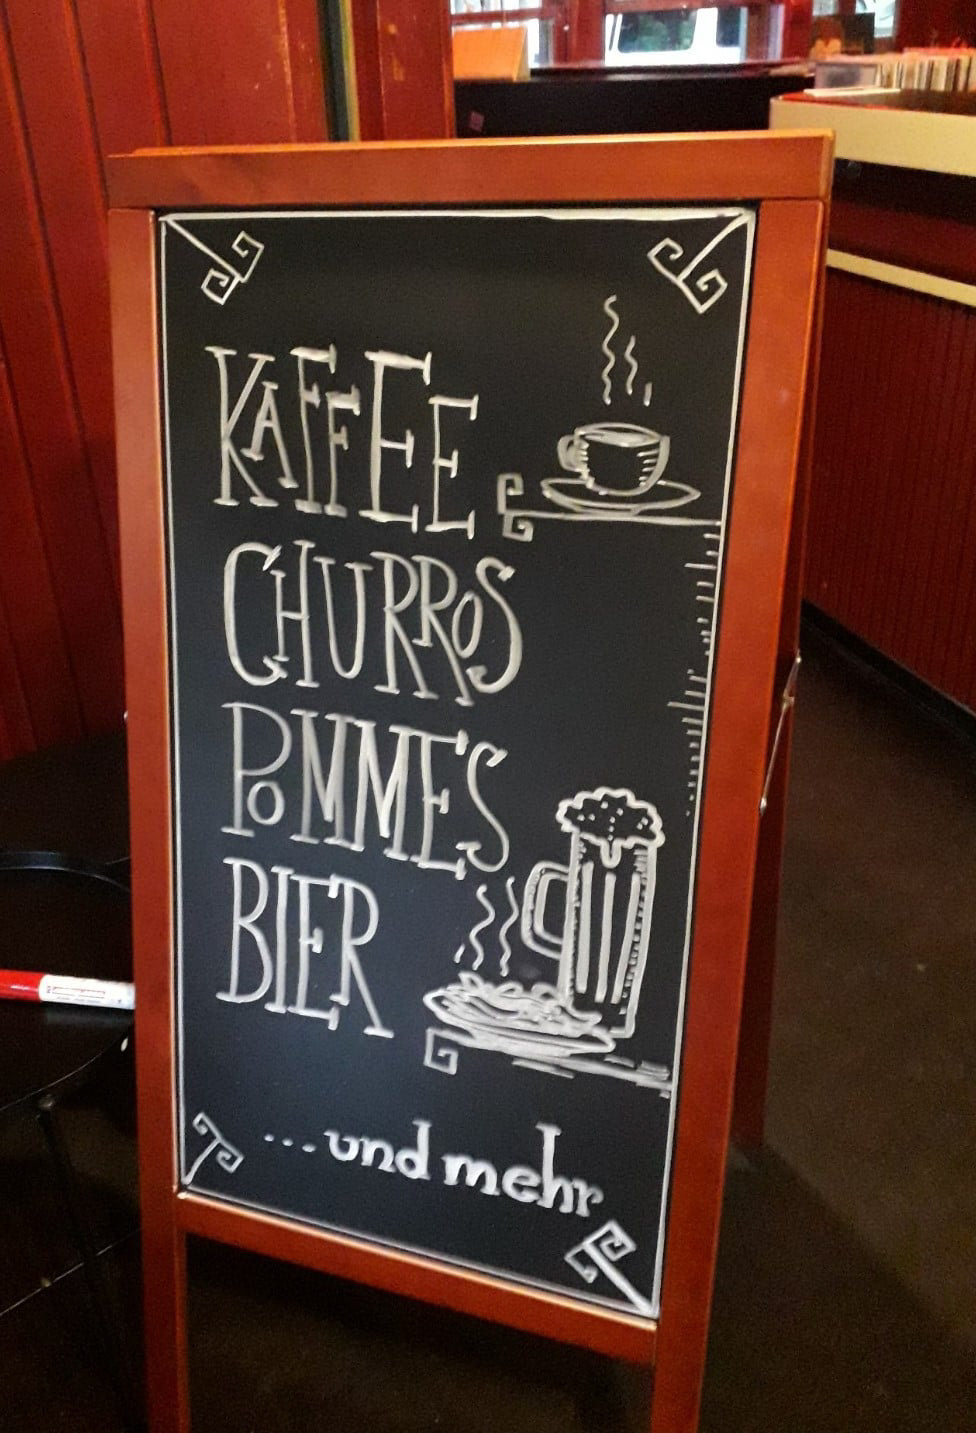 KAFFEE
CHURROS
POMMES
BIER
...und mehr